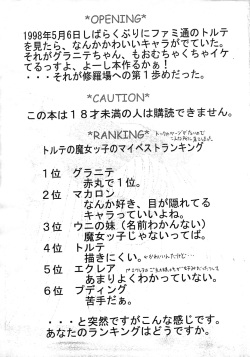 *OPENING*
1998年5月6日しばらくぶりにファミ通のトルテ
を見たら、なんかかわいいキャラがでていた。
それがグラニテちゃん、もおむちゃくちゃイケ
てるっすよ、よーし本作るかぁ!
・・・それが修羅場への第1歩めだった。
*CAUTION*
この本は18才未満の人は購読できません。
*RANKING*
トルテの魔女ッ子のマイベストランキング
1位 グラニテ
赤丸で1位。
2位 マカロン
なんか好き、目が隠れてる
キャラっていいよね。
3位 ウニの妹(名前わかんない)
魔女ッ子じゃないってば。
4位 トルテ
描きにくい。
5位 エクレア
あまりよくわかっていない。
6位 プディング
苦手だぁ。
・・・と突然ですがこんな感じです。
あなたのランキングはどうですか。